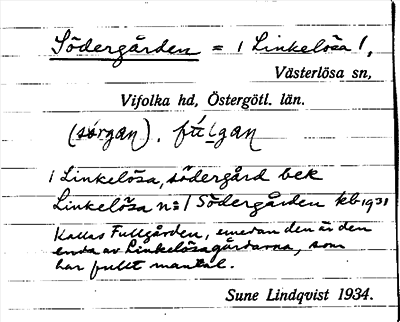 Södergården = 1 Linkelösa 1,
Västerlösa sn,
Vifolka hd, Östergötl. län.
(sørgan). fúlgan
1 Linkelösa, södergård bek
Linkelösa n:o 1 Södergården kb 1931
Kallas Fullgården, emedan den är den
enda av Linkelösagårdarna, som
har fullt mantal.
Sune Lindqvist 1934.